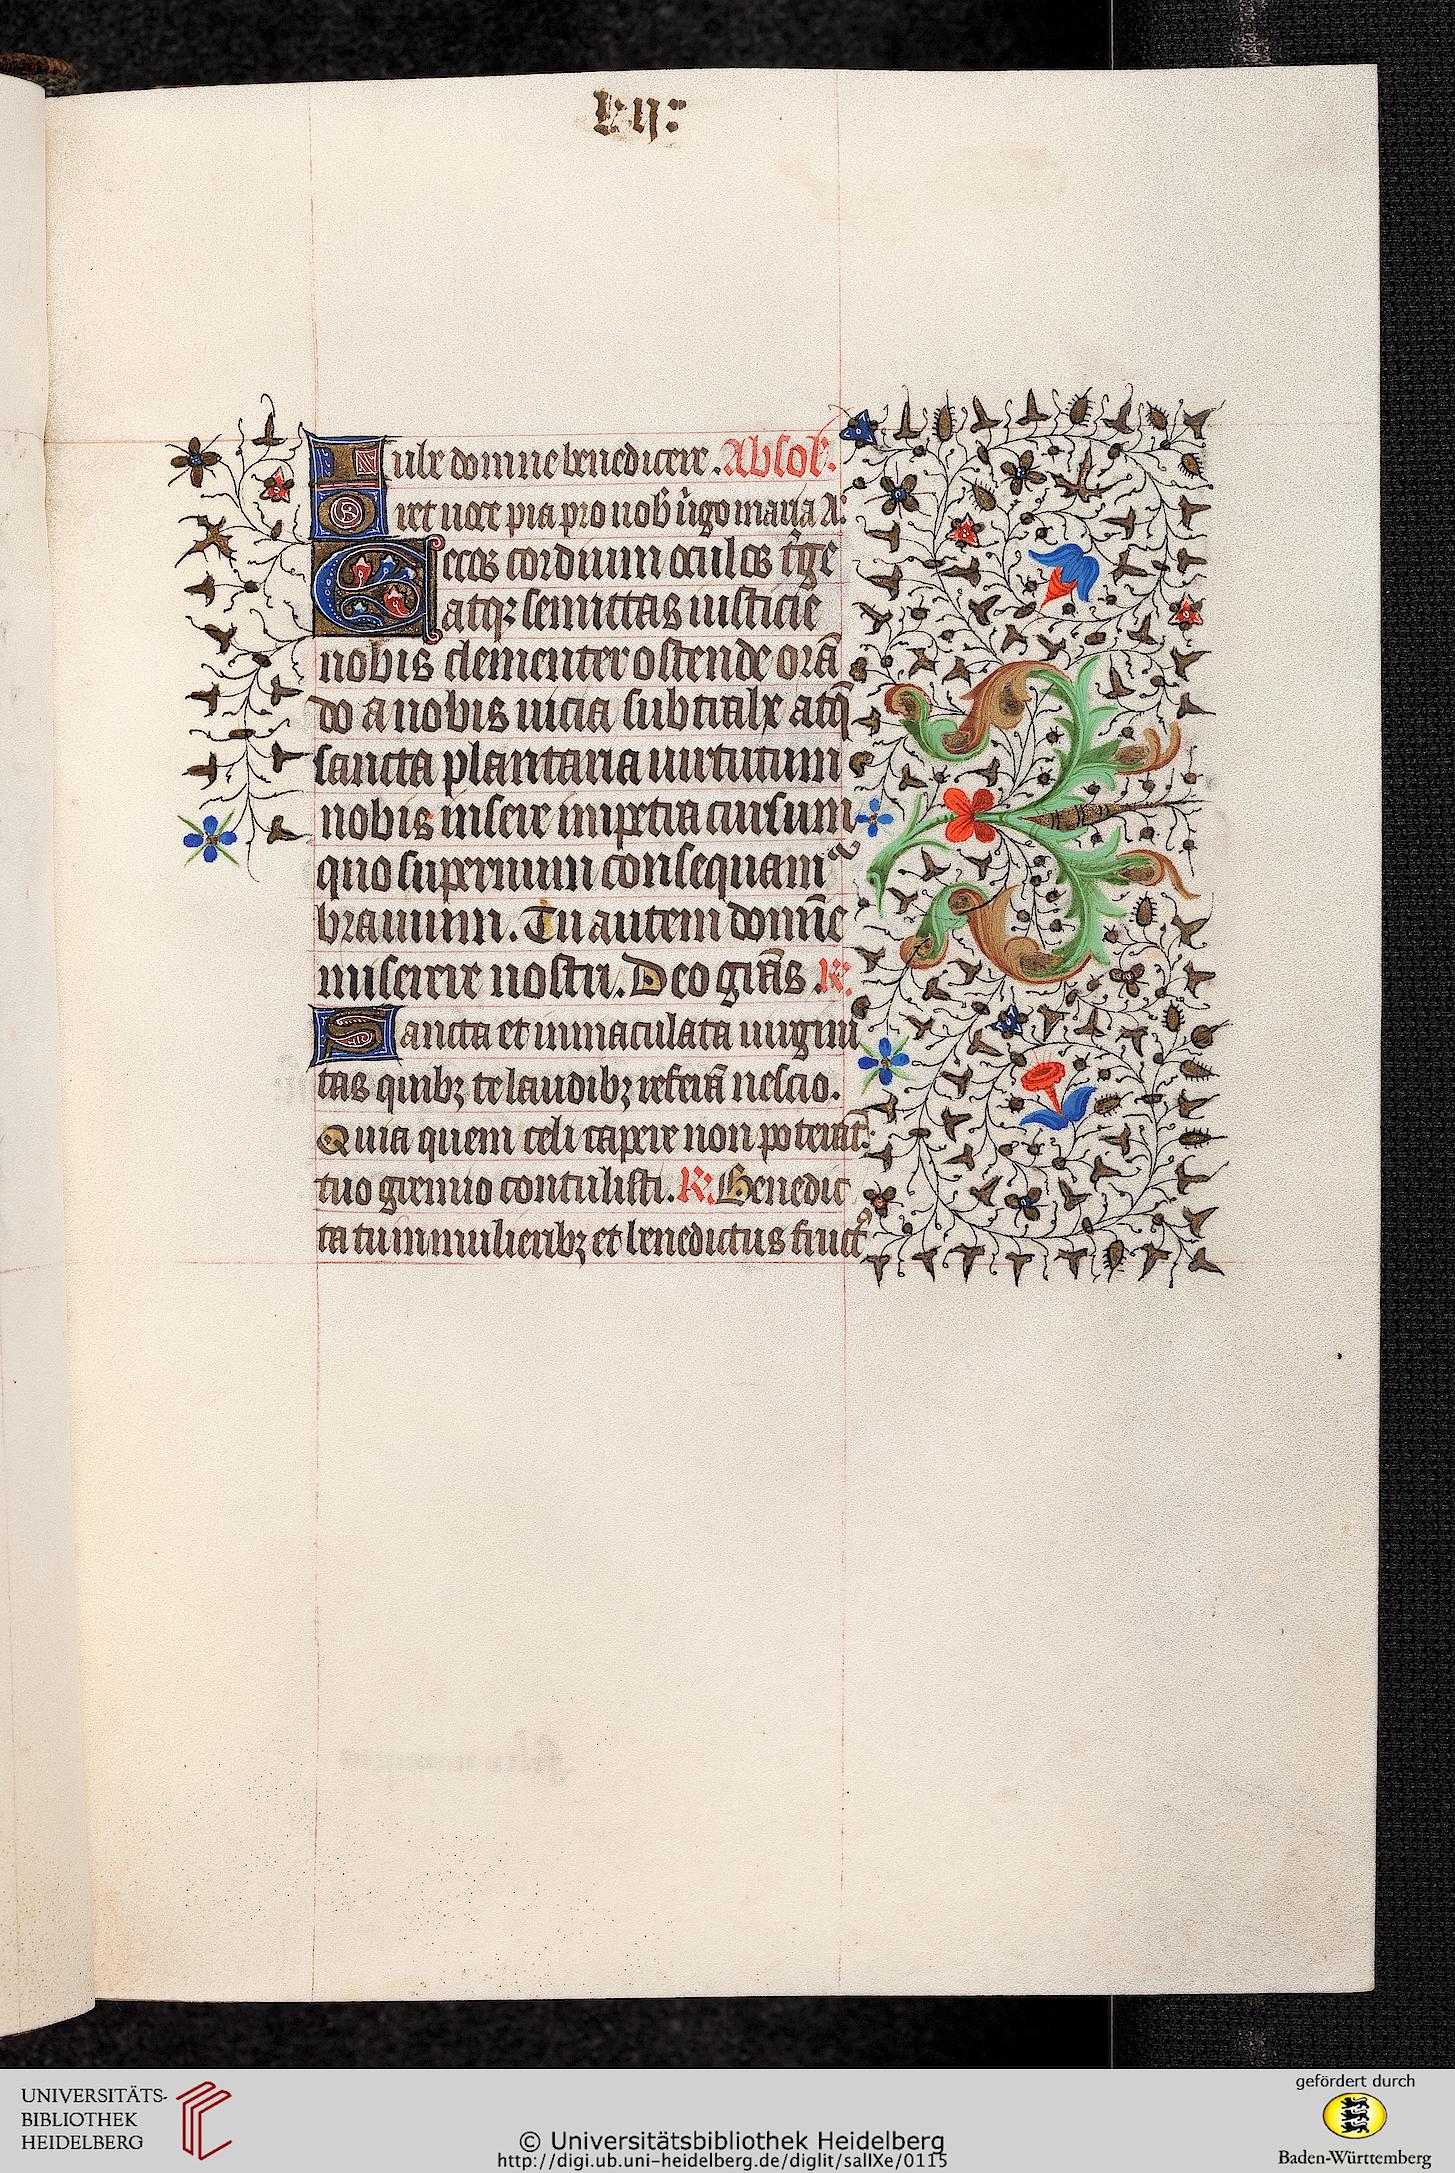 lvij:
Iube domne benedicere. Absol̕.
Oret uoce pia pro nob̄ u̇go maria A:
Cecos cordium oculos t̾ge
atqꝫ semittas iusticie
nobis clementer ostende orā
do a nobis uicia subtrahe atq̄
sancta plantaria uirtutum
nobis insere impetra cursum
quo supernum consequamᷣ
brauium. Tu autem domīe
miserere nostri. Deo gr̄as. ℟.
Sancta et immaculata uirgini
tas quibꝫ te laudibꝫ referā nescio.
Quia quem celi capere non poterāt:
tuo gremio contulisti. ℟. Benedic
ta tu in mulieribꝫ et benedictus fructꝰ
UNIVERSITÄTS-
BIBLIOTHEK
HEIDELBERG
© Universitätsbibliothek Heidelberg
http://digi.ub.uni-heidelberg.de/diglit/salIXe/0115
gefördert durch
Baden-Württemberg